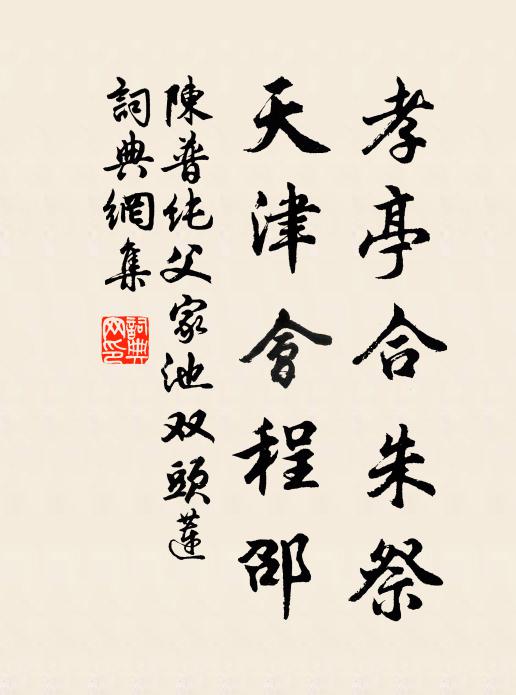 孝亭合朱祭
天津會程邵
陳普純父家池双頭蓮
詞典網集
詞典网印